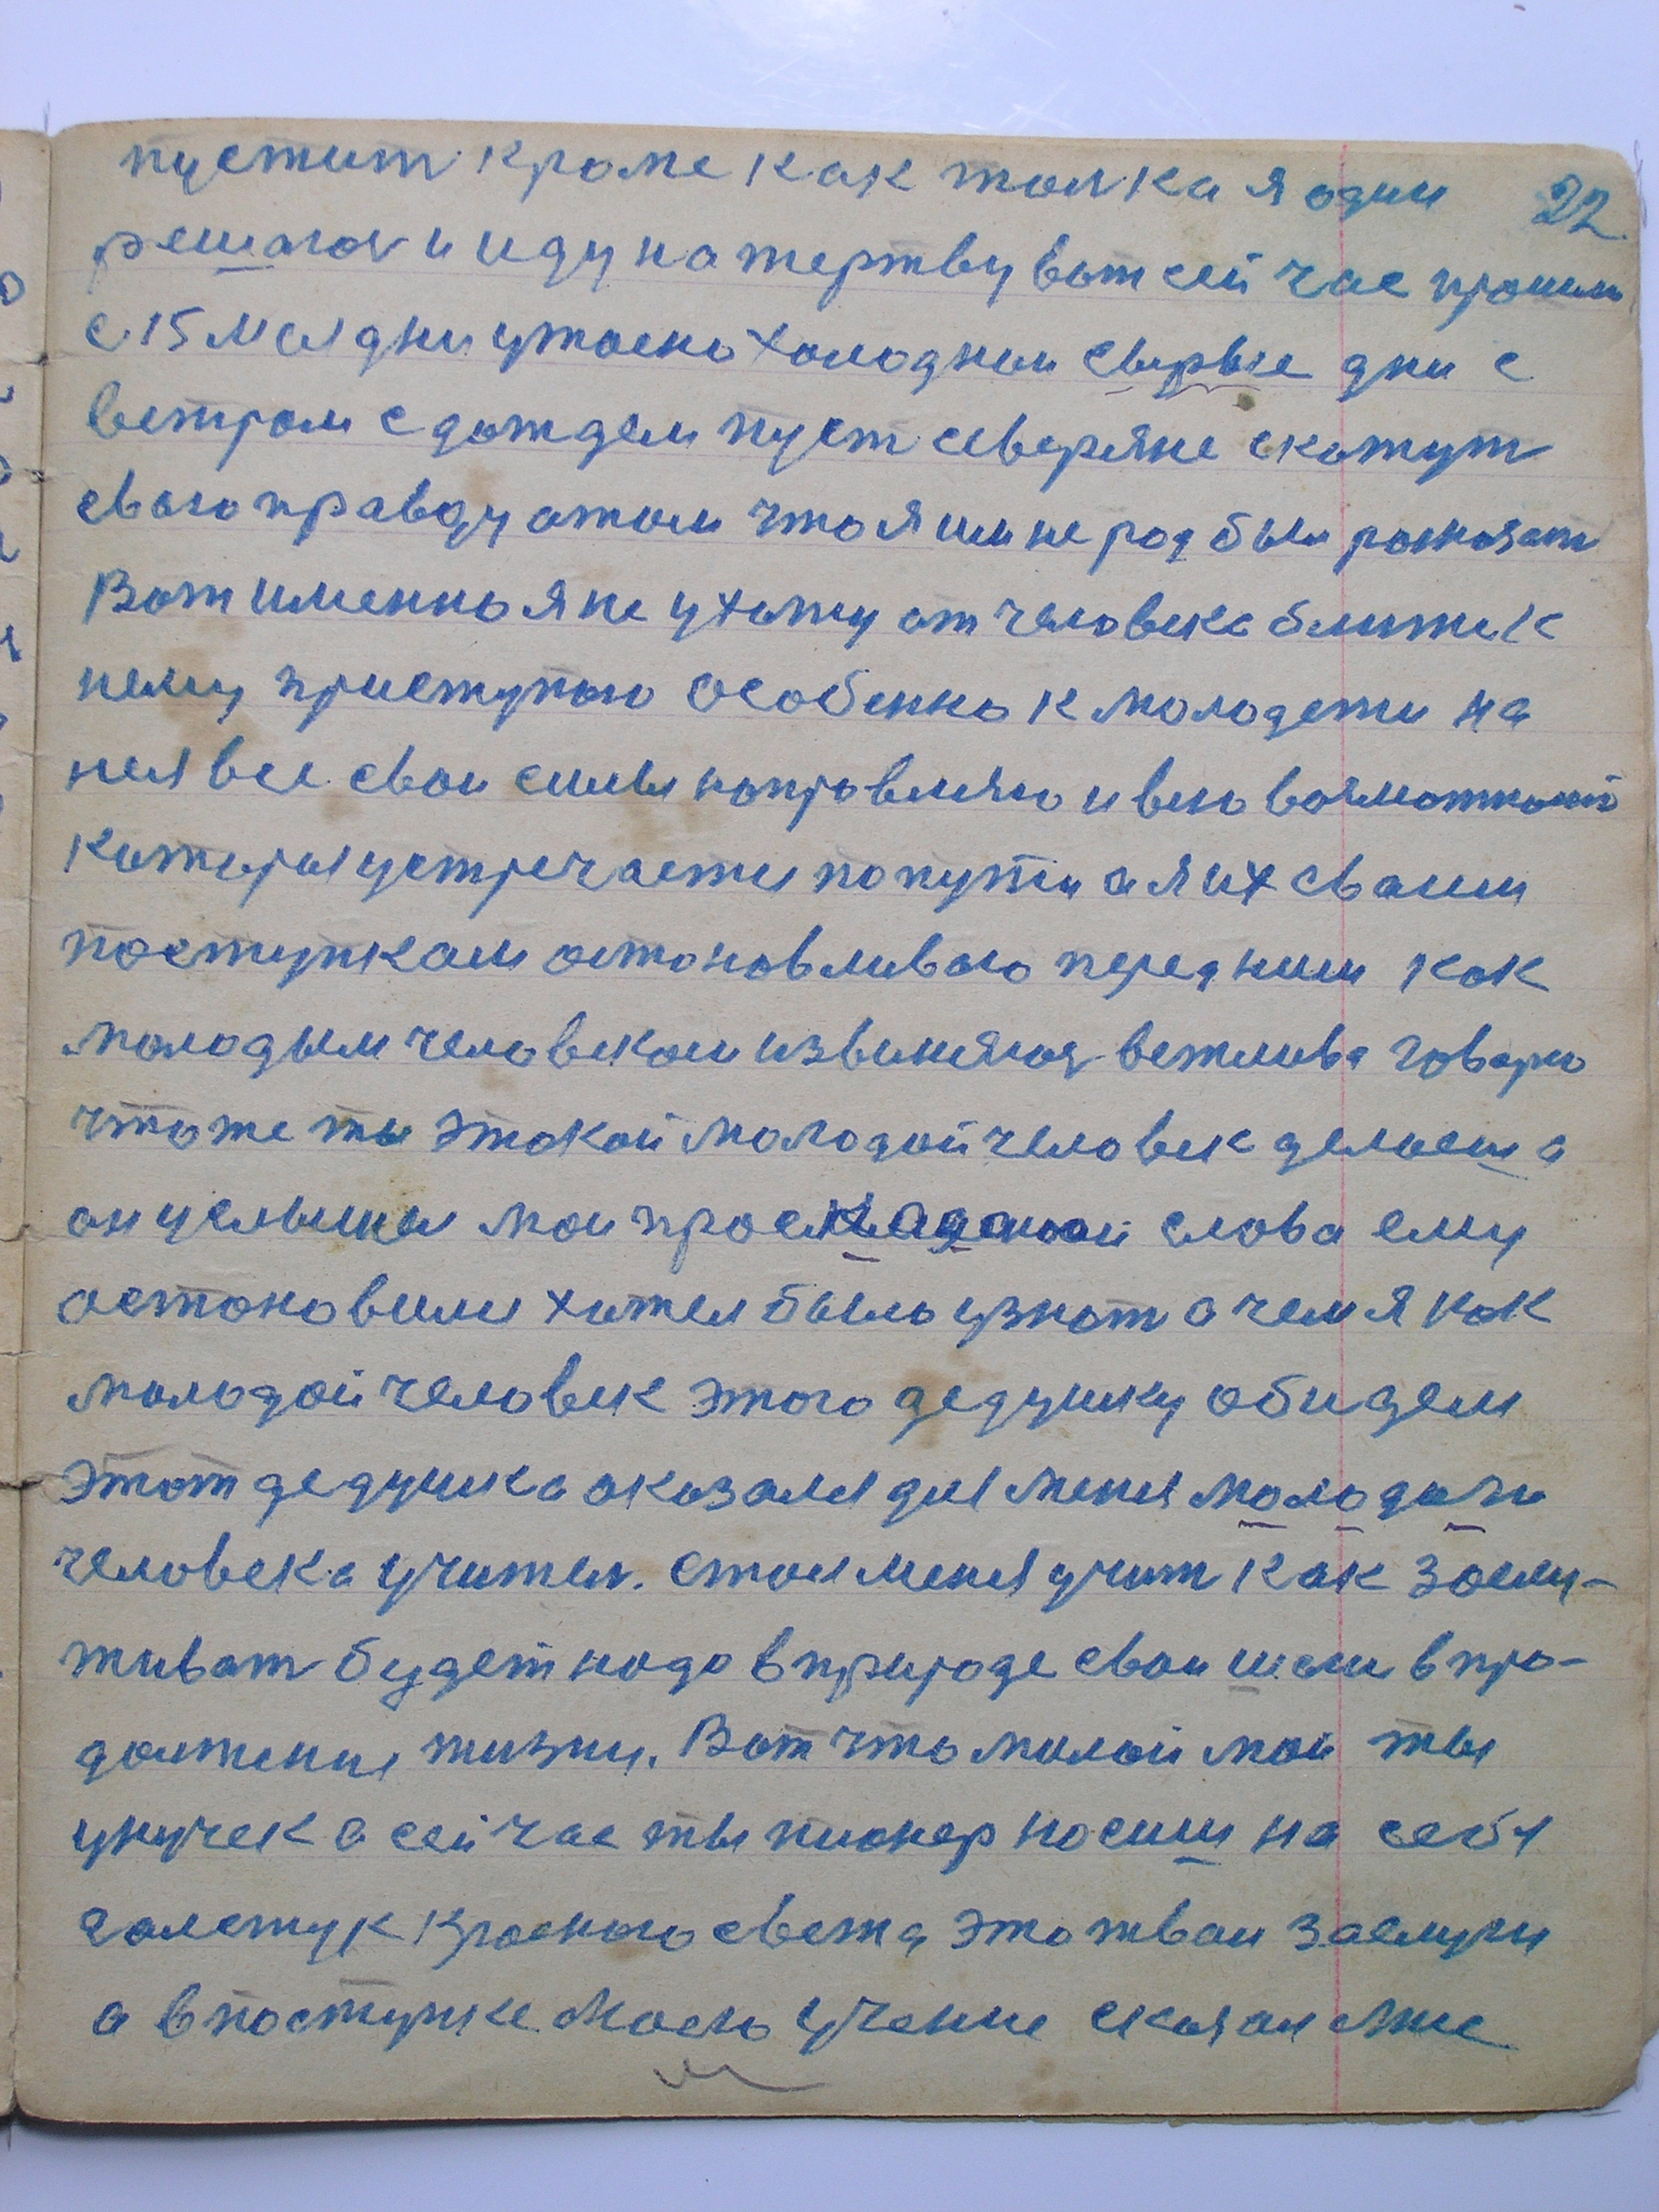 пустит кроме как толка я один 22.
решаюся и иду на жертву вот сей час прошли
с 15 мая дни ужасно холодныи сырые дни с
ветром с дождем пуст северяне скажут
сваю правду отом что я им не род был
Вот именно я не ухожу от человека ближе к
нему приступаю особенно к молодежи на
нея все свои силы направляю и всю
каторыя устречаетя попути а я их сваим
поступкам астановливаю перед ним как
молодым человеком извиняюся вежлива говорю
что же ты этокой молодой человек делаеш а
он услышал мои слова ему
астановили хател было узнат а чем я как
молодой человек этого дедушку обидел
этот дедушка аказался для меня молодого
человека учител. стал меня учит как заслу-
живат будет надо в природе свои в про-
должения жизни. Вот что милой мой ты
унучек а сей час ты пионер носиш на себя
галстук красного света это тваи заслуги
а в поступке моею учение сказал мне